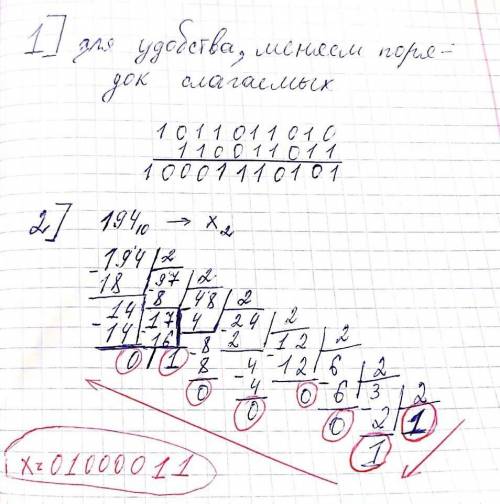 1] для удобства, меняем поря-
док слагаемых
1011011010
110011011
10001110101
2] 194₁₀ → x₂
-194 | 2
18 | 97 | 2
-14 | 8 | 48 | 2
14 | -17 | 4 | 24 | 2
0 | 16 | -8 | 2 | 12 | 2
1 | 8 | -4 | 12 | 6 | 2
0 | 4 | 0 | 6 | 3 | 2
0 | 0 | 2 | 1
1
x=01000011